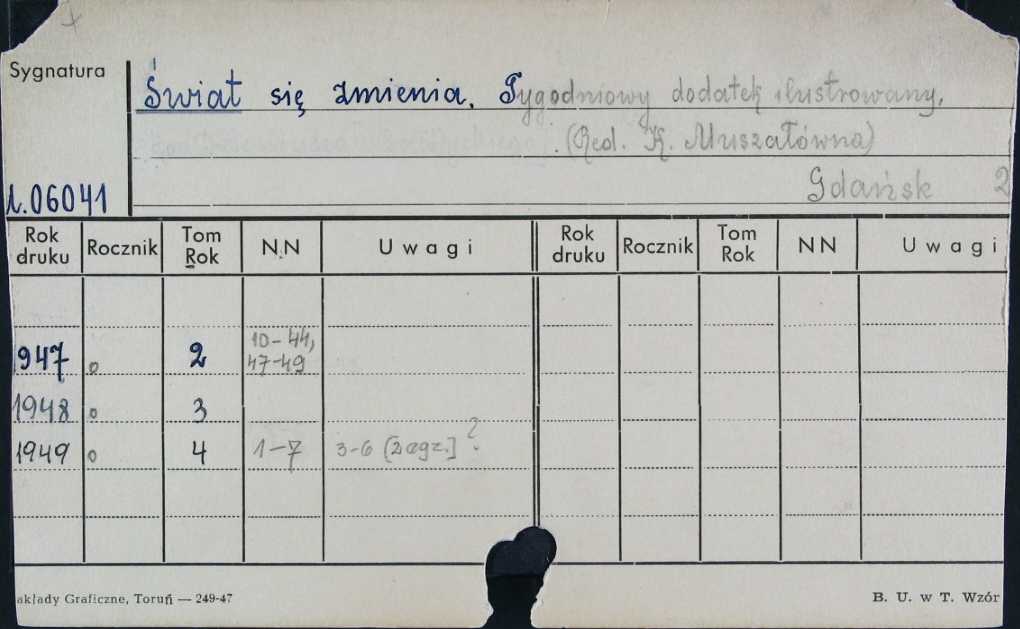 Sygnatura
Świat się zmienia. Tygodniowy dodatek ilustrowany.
(Red. K. Muszałówna)
Gdańsk 2
1.06041
Rok druku Rocznik Tom Rok N.N Uwagi Rok druku Rocznik Tom Rok NN Uwagi
1947 o 2 10-44, 47-49
1948 o 3
1949 o 4 1-7 3-6 [2 egz.] ?
akłady Graficzne, Toruń — 249-47 B. U. w T. Wzór